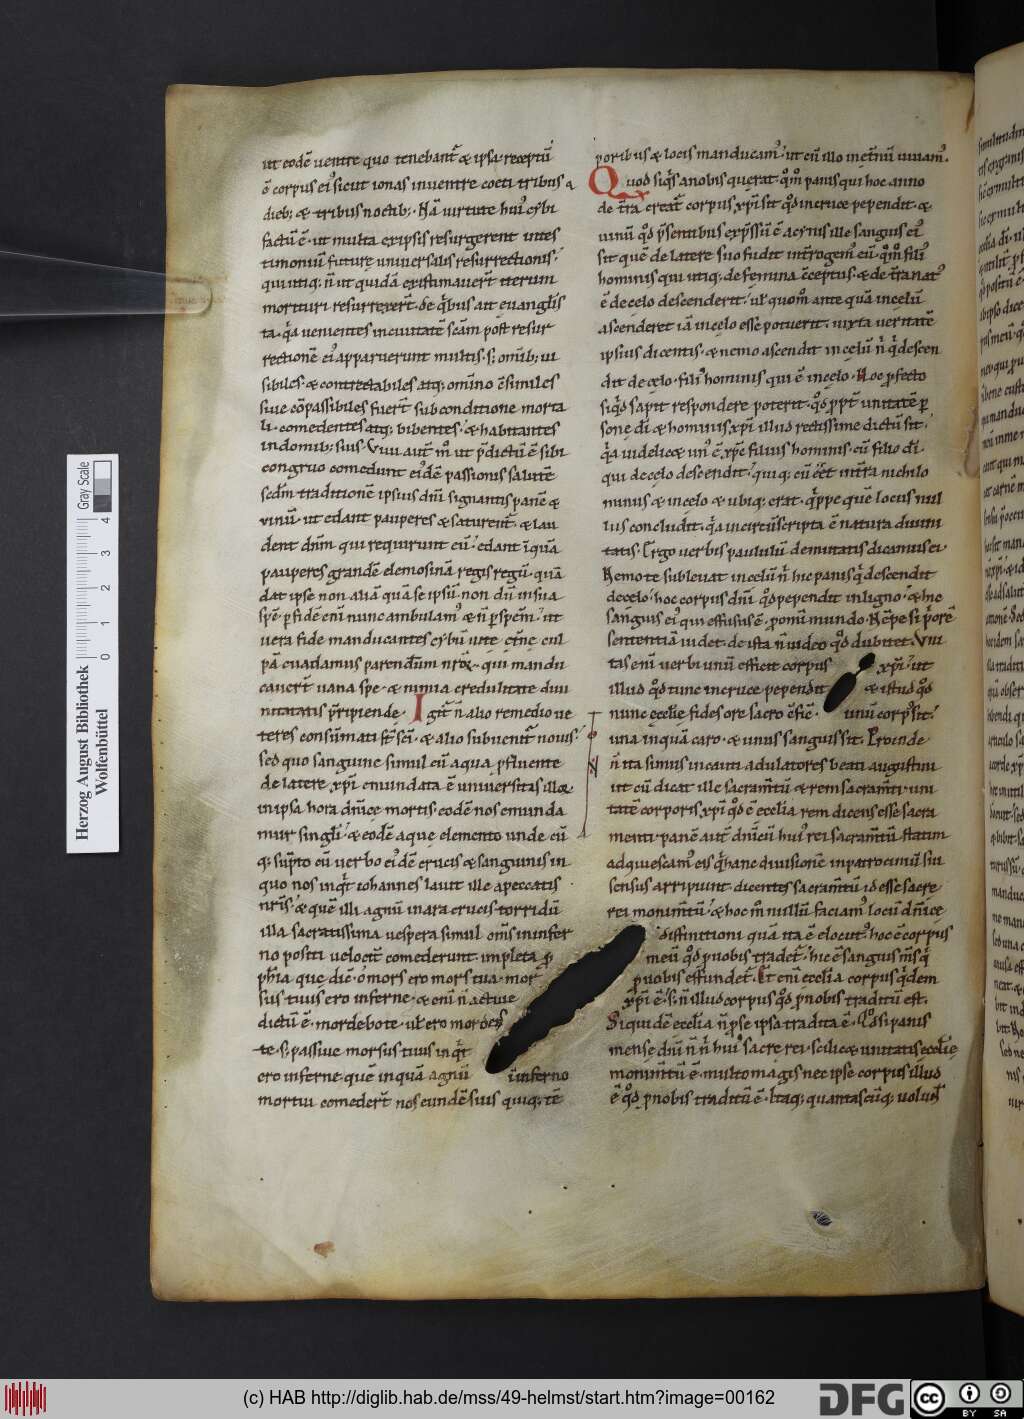 ut eodē uentre quo tenebant᷑ & ipsa receptū
ē corpus ei᷒ sicut ionas inuentre coeti tribus
dieb; & tribus noctib;. Nā uirtute hui᷒ cybi
factū ē. ut multa ex ipsis resurgerent intes
timoniū future uniuersalis resurrectionis.
qui utiq; n̄ ut quidā existimauer̄t iterum
morituri resurrexer̄t. de q̇bus ait euanglīs
ta. q̇a uenientes inciuitatē scām post resur
rectionē ei᷒ apparuerunt multis. s; omīb; ui
sibiles. & contrectabiles atq; omīno ē similes
siue cōpassibiles fuer̄t sub conditione morta
li. comedentes atq; bibentes. & habitantes
in domib; suis. Viui aut̄ m̊ ut p̄dictū ē sibi
congruo comedunt ei᷒dē passionis salutē
scdm̄ traditionē ipsius dn̄i signantis panē &
vinū. ut edant pauperes & saturent᷑. & lau
dent dn̄m qui requirunt eū. edant īquā
pauperes grandē elemosinā regis regū. quā
dat ipse non aliā quā se ipsū. non dū insua
spē. p̱ fidē enī nunc ambulam᷒ & n̄ p̱ spēm. ut
uera fide manducantes cybū uite etn̄e. cul
pā euadamus parentūm nrōꝝ. qui mandu
cauer̄t uana spe. & nimia credulitate diui
nitatis p̄ripiende. Igit᷑ n̄ alio remedio ue
teres consūmati st̄ scī. & alio subuenit᷑ nouis.
sed quo sanguine simul cū aqua p̱fluente
de latere xp̄i emundata ē uniuersitas illoꝝ
in ipsa hora dn̄ice mortis eodē nos emunda
mur singlī. & eodē aque elemento unde cū
q; sūpto cū uerbo ei᷒dē crucis & sanguinis in
quo nos inq̇t iohannes lauit ille a peccatis
nr̄is. & quē illi agnū in ara crucis torridū
illa sacratissima uespera simul om̄s in infer
no positi uelocit᷑ comederunt. impleta
phīa que diē. o mors ero mors tua. mor
sus tuus ero inferne. & enī n̄ actiue
dictū ē. mordebo te. ut ero mordēs
te. s; passiue morsus tuus inq̇t
ero inferne. quē inquā agnū īinferno
mortui comeder̄t nos eundē suis quiq; tē
poribus & locis manducam᷒. ut cū illo inet̄nū uiuam᷒.
Quod siq̇s a nobis querat. q̊m panis qui hoc anno
de t̄ra creat᷑ corpus xp̄i sit qd̄ in cruce pependit. &
uinū qd̄ p̄sentibus exp̄ssū ē acynis ille sanguis ei᷒
sit quē de latere suo fudit. int̄rogem᷒ eū. q̊m fili᷒
hominis qui utiq; de femina c̄ceptus. & de t̄ra nat᷒
ē de celo descenderit. ut quom̊ ante quā in celū
ascenderet iā in celo esse potuerit. iuxta ueritatē
ipsius dicentis. & nemo ascendit in celū n̄ q̇ descen
dit de celo. fili᷒ hominis qui ē in celo. Hoc p̱fecto
siq̇d sapit respondere poterit. qd̄ ppt̄ unitatē p̱
sone dī & hominis xp̄i illud rectissime dictū sit.
q̇a uidelic& un᷒ ē xp̄c filius hominis. cū filio dī.
qui de celo descendit. quiq; cū ēēt intra nichilo
minus & in celo & ubiq; erat. q̇ppe quē locus nul
lus concludit. q̇a incircūscripta ē natura diuini
tatis. Ergo uerbis paululū demutatis dicamus ei.
Nemo te subleuat in celū n̄ hic panis q̇ descendit
de celo. hoc corpus dn̄i qd̄ pependit in ligno. & hic
sanguis ei᷒ qui effusus ē p omī mundo. Nēpe si p̄orē
sententiā uidet. de ista n̄ uideo qd̄ dubitet. Vni
tas enī uerbi unū efficit corpus xp̄i. ut
illud qd̄ tunc in cruce pependit & istud qd̄
nunc ecclīe fides ore sacro c̄ficit. unū corp᷒ sit.
una inquā caro. & unus sanguis sit. Proinde
n̄ ita simus incauti adulatores beati augustini
ut cū dicat ille sacram̄tū & rem sacram̄ti. uni
tatē corporis xp̄i qd̄ ē ecclīa rem dicens esse sacra
menti. panē aut̄ dn̄icū hui᷒ rei sacram̄tū. statim
adquiescam᷒ eis q̇ hanc diuisionē in patrociniū sui
sensus arripiunt. dicentes sacram̄tū id esse sacre
rei monim̄tū. & hoc m̊ nullū faciam᷒ locū dn̄ice
diffinitioni quā ita ē elocut᷒. hoc ē corpus
meū qd̄ p uobis tradet᷑. hic ē sanguis m̄s q̇
p uobis effundet᷑. Et enī ecclīa corpus q̇dem
xp̄i ē. s; n̄ illud corpus qd̄ p nobis traditū est.
Siquidē ecclīa n̄ p se ipsa tradita ē. Qd̄si panis
mense dn̄i n̄ n̄ hui᷒ sacre rei. scilic& unitatis ecclīe
monim̄tū ē. multo magis nec ipse corpus illud
ē qd̄ p nobis traditū ē. Itaq; quantascūq; uolues
Herzog August Bibliothek
Wolfenbüttel
0 1 2 3 4
Gray Scale
(c) HAB http://diglib.hab.de/mss/49-helmst/start.htm?image=00162
DFG
cc
BY SA